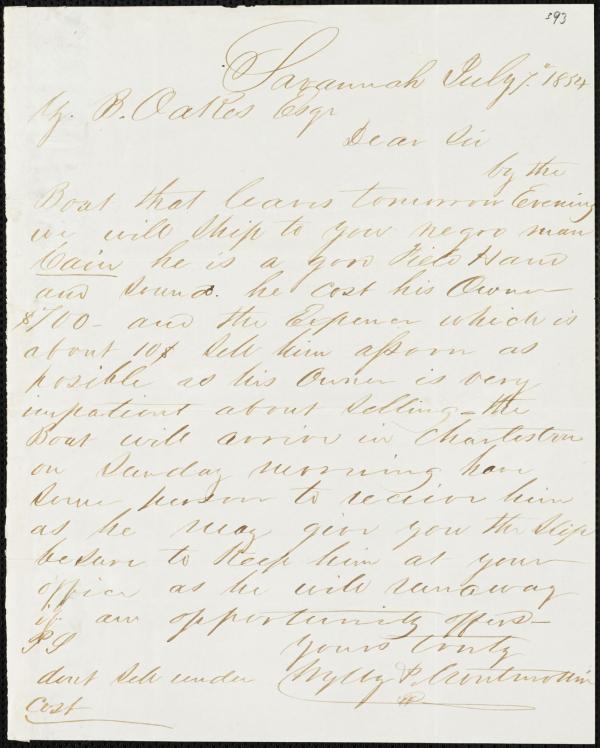 393
Savannah July 7th 1854
Z. B. Oakes Esqr
Dear Sir
by the
Boat that leaves tomorrow Evening
we will Ship to you negro man
Cain he is a good Field Hand
and Sound. he cost his Owner
$700 - and the Expences which is
about 10$ Sell him assoon as
posible as his Owner is very
impatient about Selling - the
Boat will arrive in Charleston
on Sunday morning have
Some person to receive him
as he may give you the Slip
be sure to Keep him at your
office as he will runaway
if an opportunity offers -
yours truly
Wylly &
PS
dont Sell under
Cost